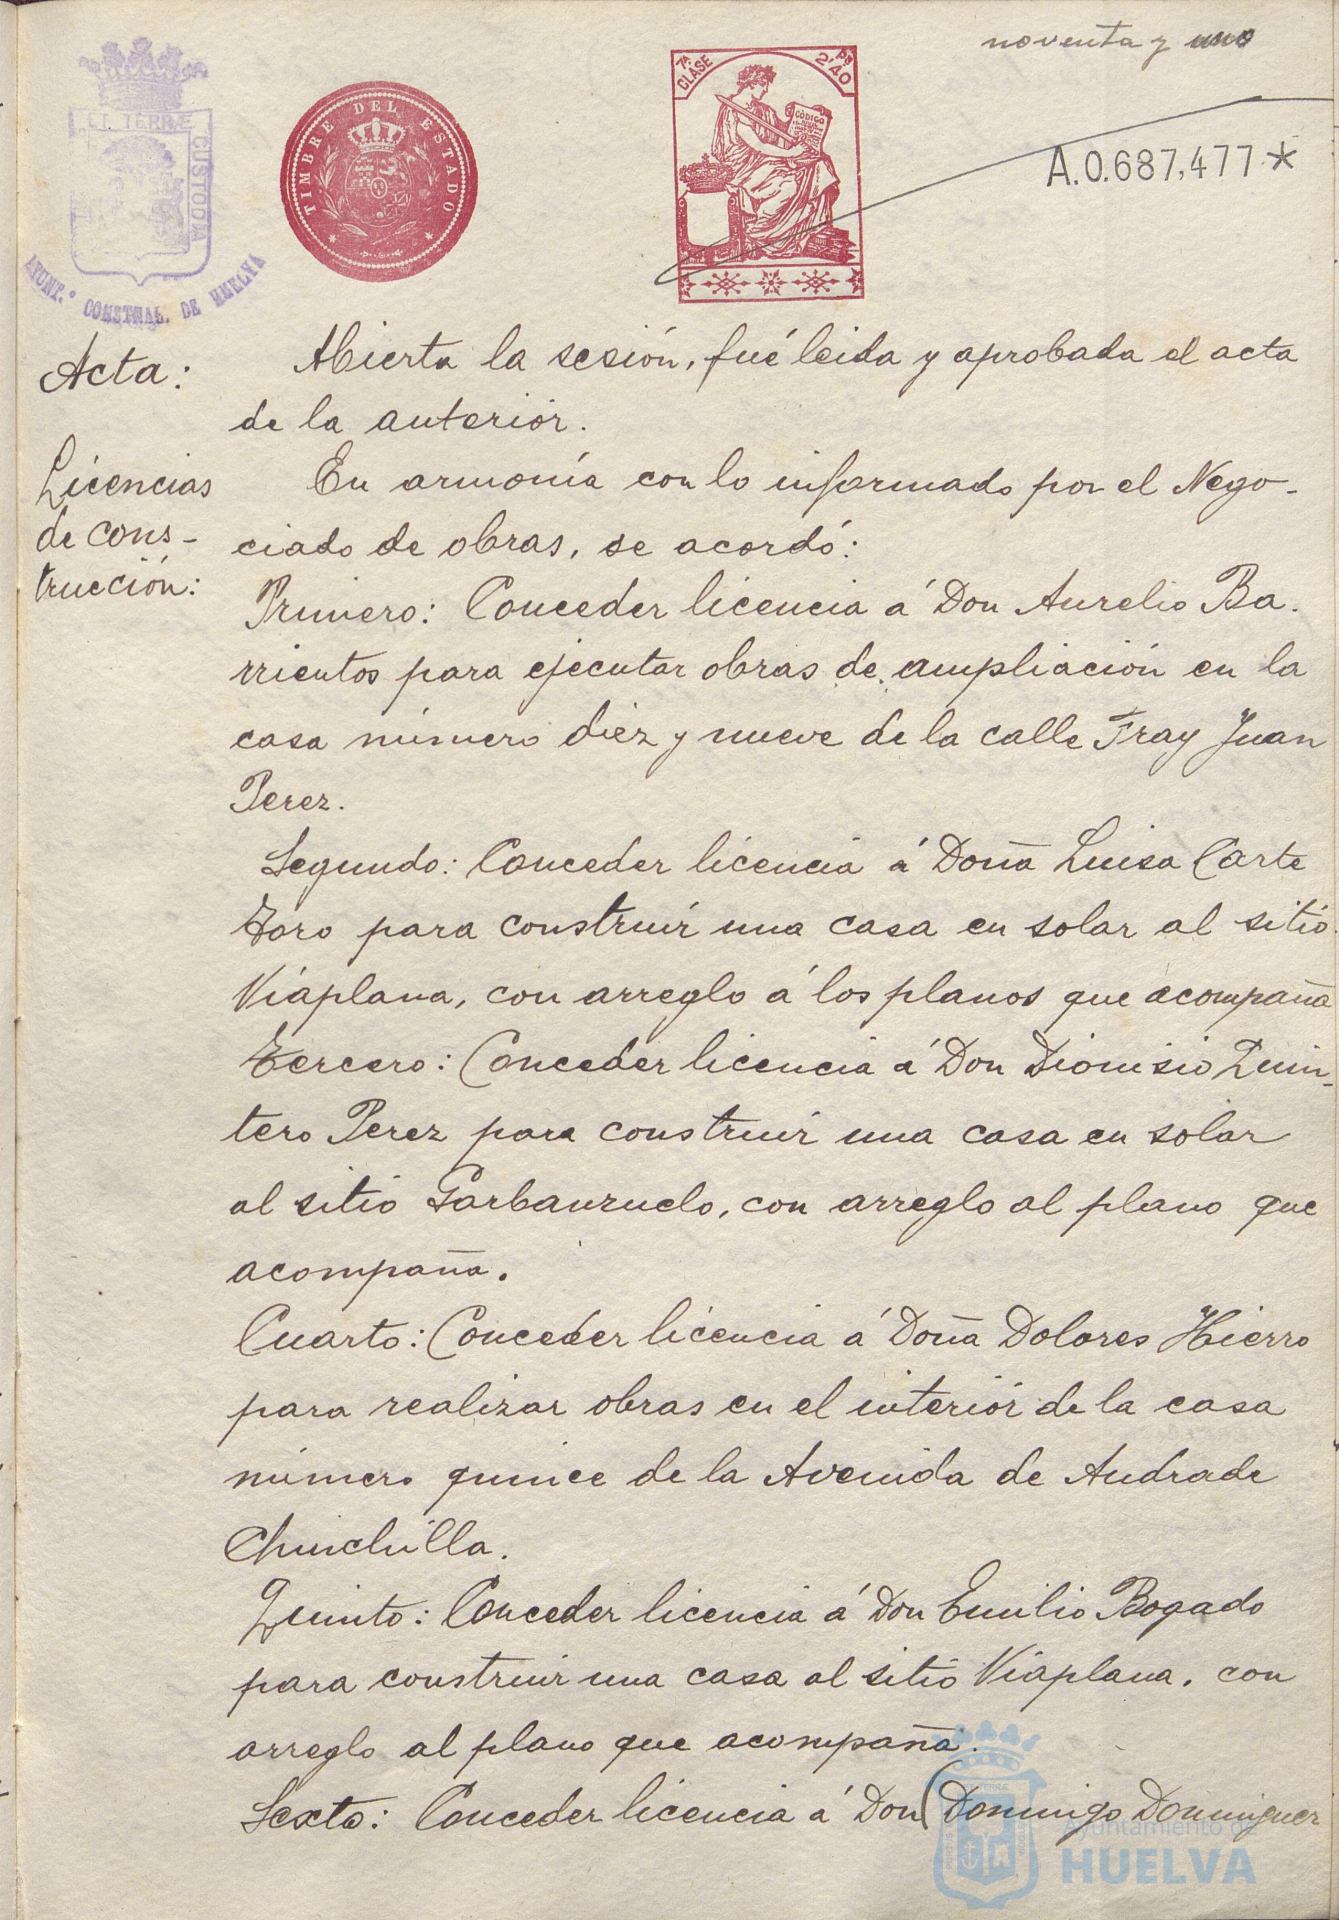 noventa y uno
ET TERRÆ
CUSTODIA
AYUNT.º CONSTNAL. DE HUELVA
TIMBRE DEL ESTADO
7ª CLASE
Ps 2'40
CÓDIGO
A.0.687,477*
Acta:
Abierta la sesión, fué leida y aprobada el acta
de la anterior.
Licencias
de cons-
trucción:
En armonía con lo informado por el Nego-
ciado de obras, se acordó:
Primero: Conceder licencia á Don Aurelio Ba-
rrientos para ejecutar obras de ampliación en la
casa número diez y nueve de la calle Fray Juan
Perez.
Segundo: Conceder licencia á Doña Luisa Carte
Toro para construir una casa en solar al sitio
Viaplana, con arreglo á los planos que acompaña
Tercero: Conceder licencia á Don Dionisio Quin-
tero Perez para construir una casa en solar
al sitio Garbanzuelo, con arreglo al plano que
acompaña.
Cuarto: Conceder licencia á Doña Dolores Hierro
para realizar obras en el interior de la casa
número quince de la Avenida de Andrade
Chinchilla.
Quinto: Conceder licencia á Don Emilio Bogado
para construir una casa al sitio Viaplana, con
arreglo al plano que acompaña.
Sexto: Conceder licencia á Don (Domingo Dominguez
Ayuntamiento de
HUELVA